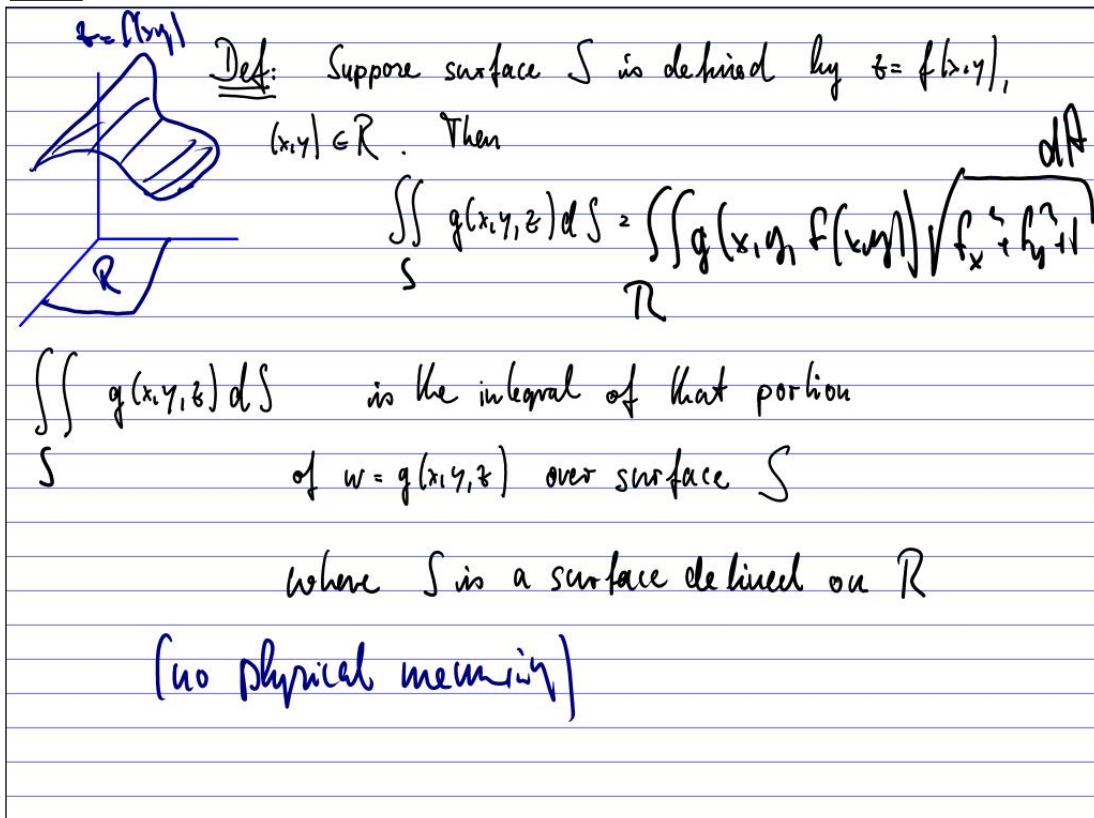 z = f(x,y)
Def: Suppose surface S is defined by z = f(x,y),
(x,y) ∈ R. Then
∬_S g(x,y,z) dS = ∬_R g(x,y,f(x,y)) √(f_x² + f_y² + 1) dA
R
∬_S g(x,y,z) dS is the integral of that portion
of w = g(x,y,z) over surface S
where S is a surface defined on R
(no physical meaning)